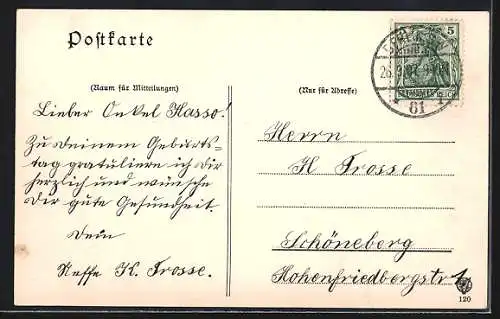 Postkarte
(Raum für Mitteilungen)
(Nur für Adresse)
Lieber Onkel Hasso!
Zu deinem Geburts-
tag gratuliere ich dir
herzlich und wünsche
dir gute Gesundheit.
Dein
Neffe K. Trosse.
Herrn
H Trosse
Schöneberg
Hohenfriedbergstr 1
5
61
120